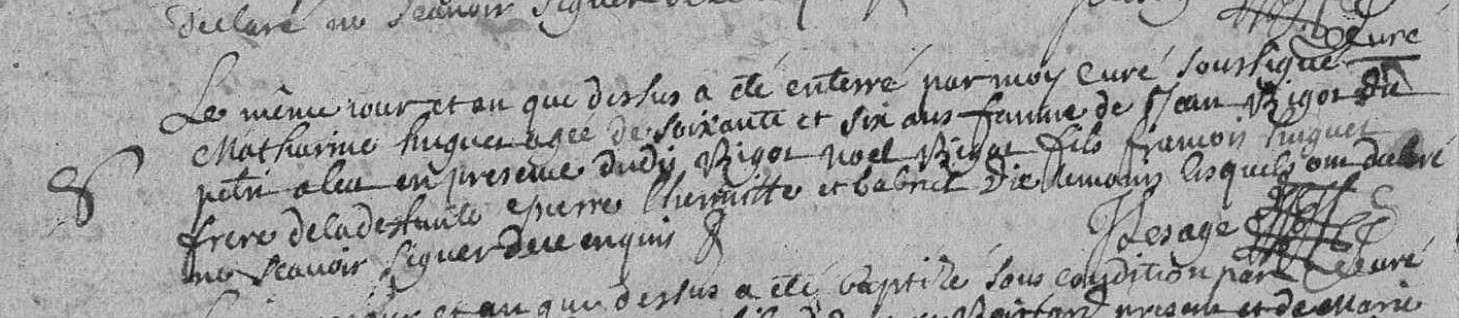 declaré ne scavoir signer
Curé
Le même jour et an que dessus a été enterré par moy Curé soussigné
Matharine huguet agée de soixante et six ans famme de Jean Bigot die
en presence dudy Bigot noel Bigot fils francois huguet
frere deladefunte pierre Lhermitte et Gabriel die lesquels ont declaré
ne scavoir signer dece enquis
JLesage
Curé
et an que dessus a été baptizé sous condition par
present et de Marie